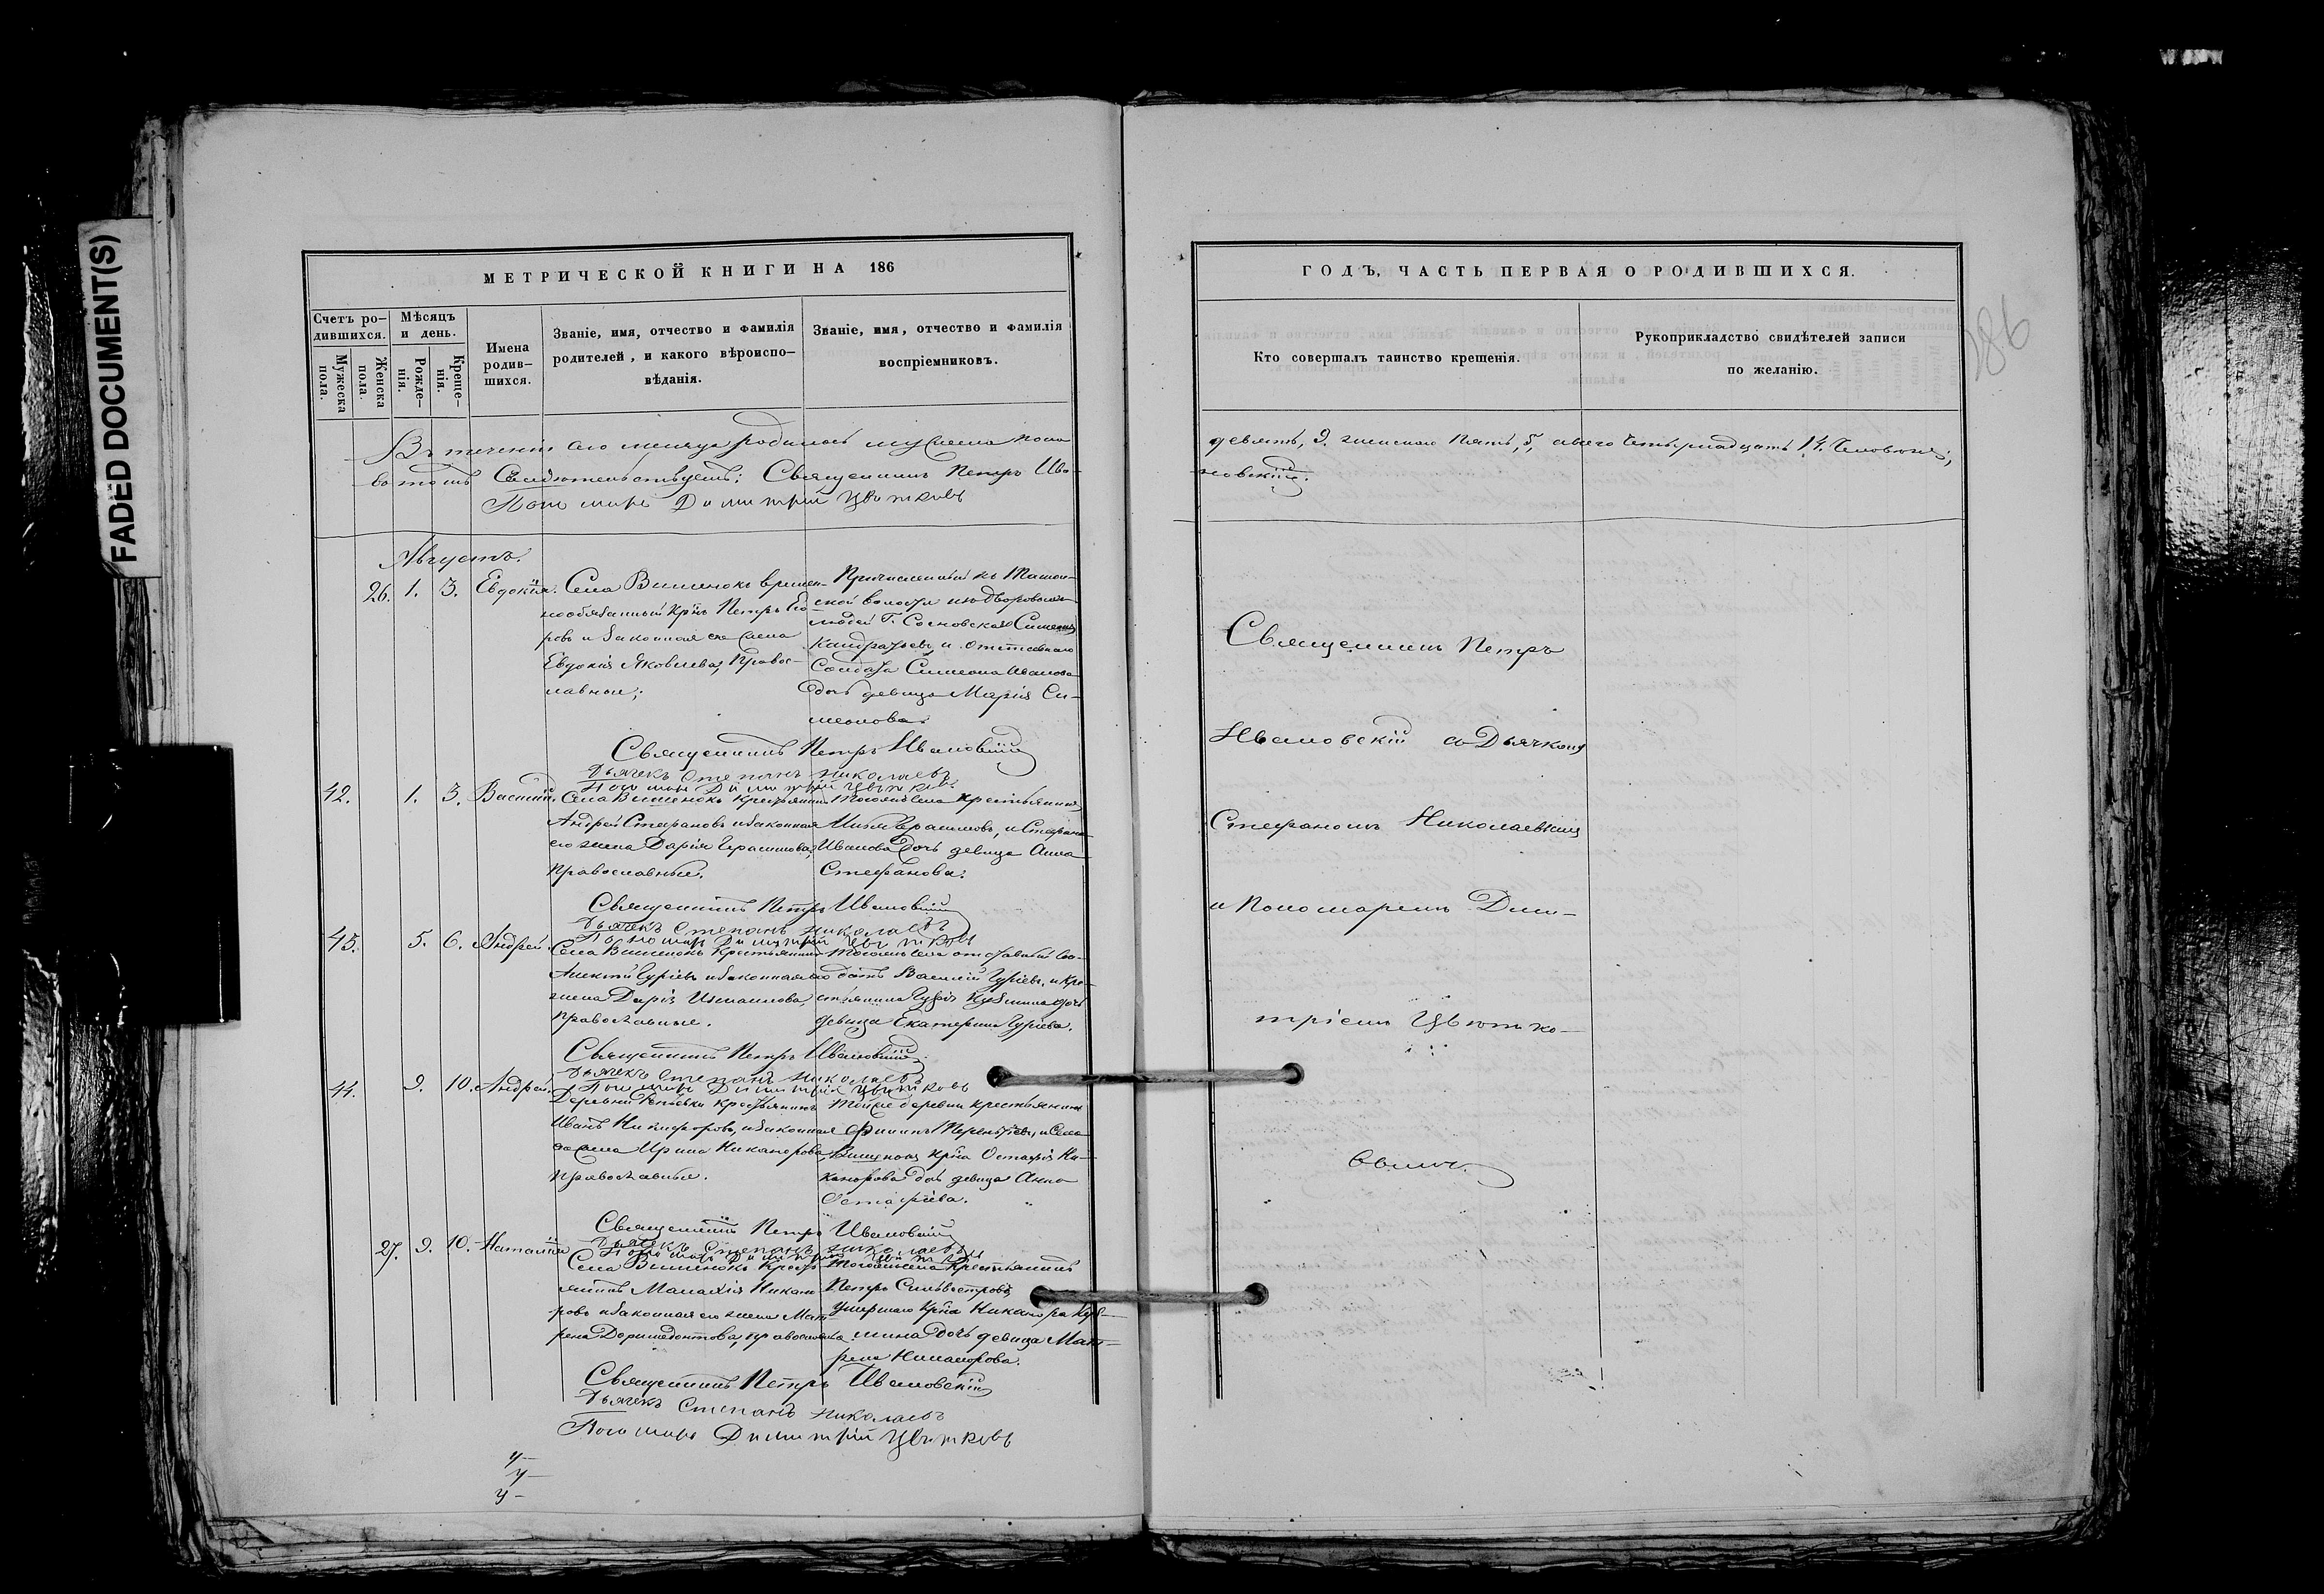 FADED DOCUMENT(S)
МЕТРИЧЕСКОЙ КНИГИ НА 186
Счетъ ро-
дившихся.
Мужеска
пола.
Женска
пола.
Мѣсяцъ
и день.
Рожде-
нія.
Креще-
нія.
Имена
родив-
шихся.
Званіе, имя, отчество и фамилія
родителей, и какого вѣроиспо-
вѣданія.
Званіе, имя, отчество и фамилія
воспріемниковъ.
ГОДЪ, ЧАСТЬ ПЕРВАЯ О РОДИВШИХСЯ.
Кто совершалъ таинство крещенія.
Рукоприкладство свидѣтелей записи
по желанію.
186
Въ теченіи сего месяца родилось мужеска пола
девять, 9. женскаго пять, 5, а всего четырнадцать 14. человекъ,
въ томъ свидетельствуемъ: Священникъ Петръ Ива-
новскій.
Пономарь Димитрій Цвѣтковъ
Августъ.
26. 1. 3. Евдокія.
Села Вишенокъ времен-
нообязанный Крнъ Петръ Его-
ровъ и законная его жена
Евдокія Яковлева, Правос-
лавные;
Причисленный къ
ской волости изъ дворовыхъ
людей Г. Сосновская Симеонъ
Кандратьевъ, и отставнаго
Солдата Симеона Иванова
дочь девица Марія Си-
меонова.
Священникъ Петръ Ивановскій
Дьячекъ Степанъ Николаевъ
Пономарь Димитрій Цвѣтковъ
42. 1. 3. Василій.
Села Вишенокъ крестьянинъ
Андрей Стефановъ и законная
его жена Дарія Герасимова,
Православные.
Тогоже села крестьянинъ
Герасимовъ, и Стефана
Иванова дочь девица Анна
Стефанова.
Священникъ Петръ Ивановскій
Дьячекъ Степанъ Николаевъ
Пономарь Димитрій Цвѣтковъ
43. 5. 6. Андрей.
Села Вишенокъ Крестьянинъ
Гуріевъ и законная его
жена Дарія Измаилова
Православные.
Тогожъ села отставный Сол-
датъ Василій Гуріевъ, и Кре-
стьянина Гурія Кузмина дочь
девица Екатерина Гуріева.
Священникъ Петръ Ивановскій
Дьячекъ Степанъ Николаевъ
Пономарь Димитрій Цвѣтковъ
44. 9. 10. Андрей.
Деревни Репьевки Крестьянинъ
Иванъ Никифоровъ, и законная
его жена Ирина Никанорова,
Православные.
Тойже деревни крестьянинъ
Филипъ Терентьевъ, и Села
Вишенокъ Крна Остафія Ни-
канорова дочь девица Анна
Остафіева.
Священникъ Петръ Ивановскій
Дьячекъ Степанъ Николаевъ
Пономарь Димитрій Цвѣтковъ
27. 9. 10. Наталія
Села Вишенокъ Крест-
янинъ Малахія Никано-
ровъ и законная его жена Мат-
рена Доримедонтова, православные
Тогоже села Крестьянинъ
Петръ Сильвестровъ,
умершаго Крна Никанора Куз-
мина дочь девица Мат-
рена Никанорова.
Священникъ Петръ Ивановскій
Дьячекъ Степанъ Николаевъ
Пономарь Димитрій Цвѣтковъ
Священникъ Петръ
Ивановскій съ Дьячкомъ
Стефаномъ Николаевымъ
и Пономаремъ Дими-
тріемъ Цвѣтко-
вымъ.